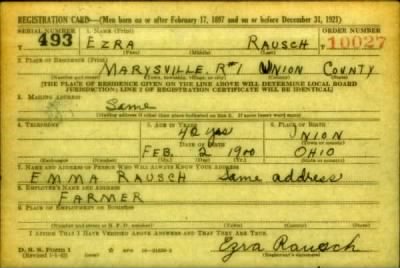 REGISTRATION CARD—(Men born on or after February 17, 1897 and on or before December 31, 1921)
SERIAL NUMBER 1. NAME (Print) ORDER NUMBER
493 EZRA RAUSCH 10027
(First) (Middle) (Last)
2. PLACE OF RESIDENCE (Print)
MARYSVILLE, R#1 UNION COUNTY
(Number and street) (Town, township, village, or city) (County) (State)
[THE PLACE OF RESIDENCE GIVEN ON THE LINE ABOVE WILL DETERMINE LOCAL BOARD
JURISDICTION; LINE 2 OF REGISTRATION CERTIFICATE WILL BE IDENTICAL]
3. MAILING ADDRESS
Same
[Mailing address if other than place indicated on line 2. If same insert word same]
4. TELEPHONE 5. AGE IN YEARS 6. PLACE OF BIRTH
UNION
DATE OF BIRTH (Town or county)
FEB 2 1900 OHIO
(Exchange) (Number) (Mo.) (Day) (Yr.) (State or country)
7. NAME AND ADDRESS OF PERSON WHO WILL ALWAYS KNOW YOUR ADDRESS
EMMA RAUSCH Same address
8. EMPLOYER'S NAME AND ADDRESS
FARMER
9. PLACE OF EMPLOYMENT OR BUSINESS
(Number and street or R. F. D. number) (Town) (County) (State)
I AFFIRM THAT I HAVE VERIFIED ABOVE ANSWERS AND THAT THEY ARE TRUE.
D. S. S. FORM 1
Ezra Rausch
(Registrant's signature)